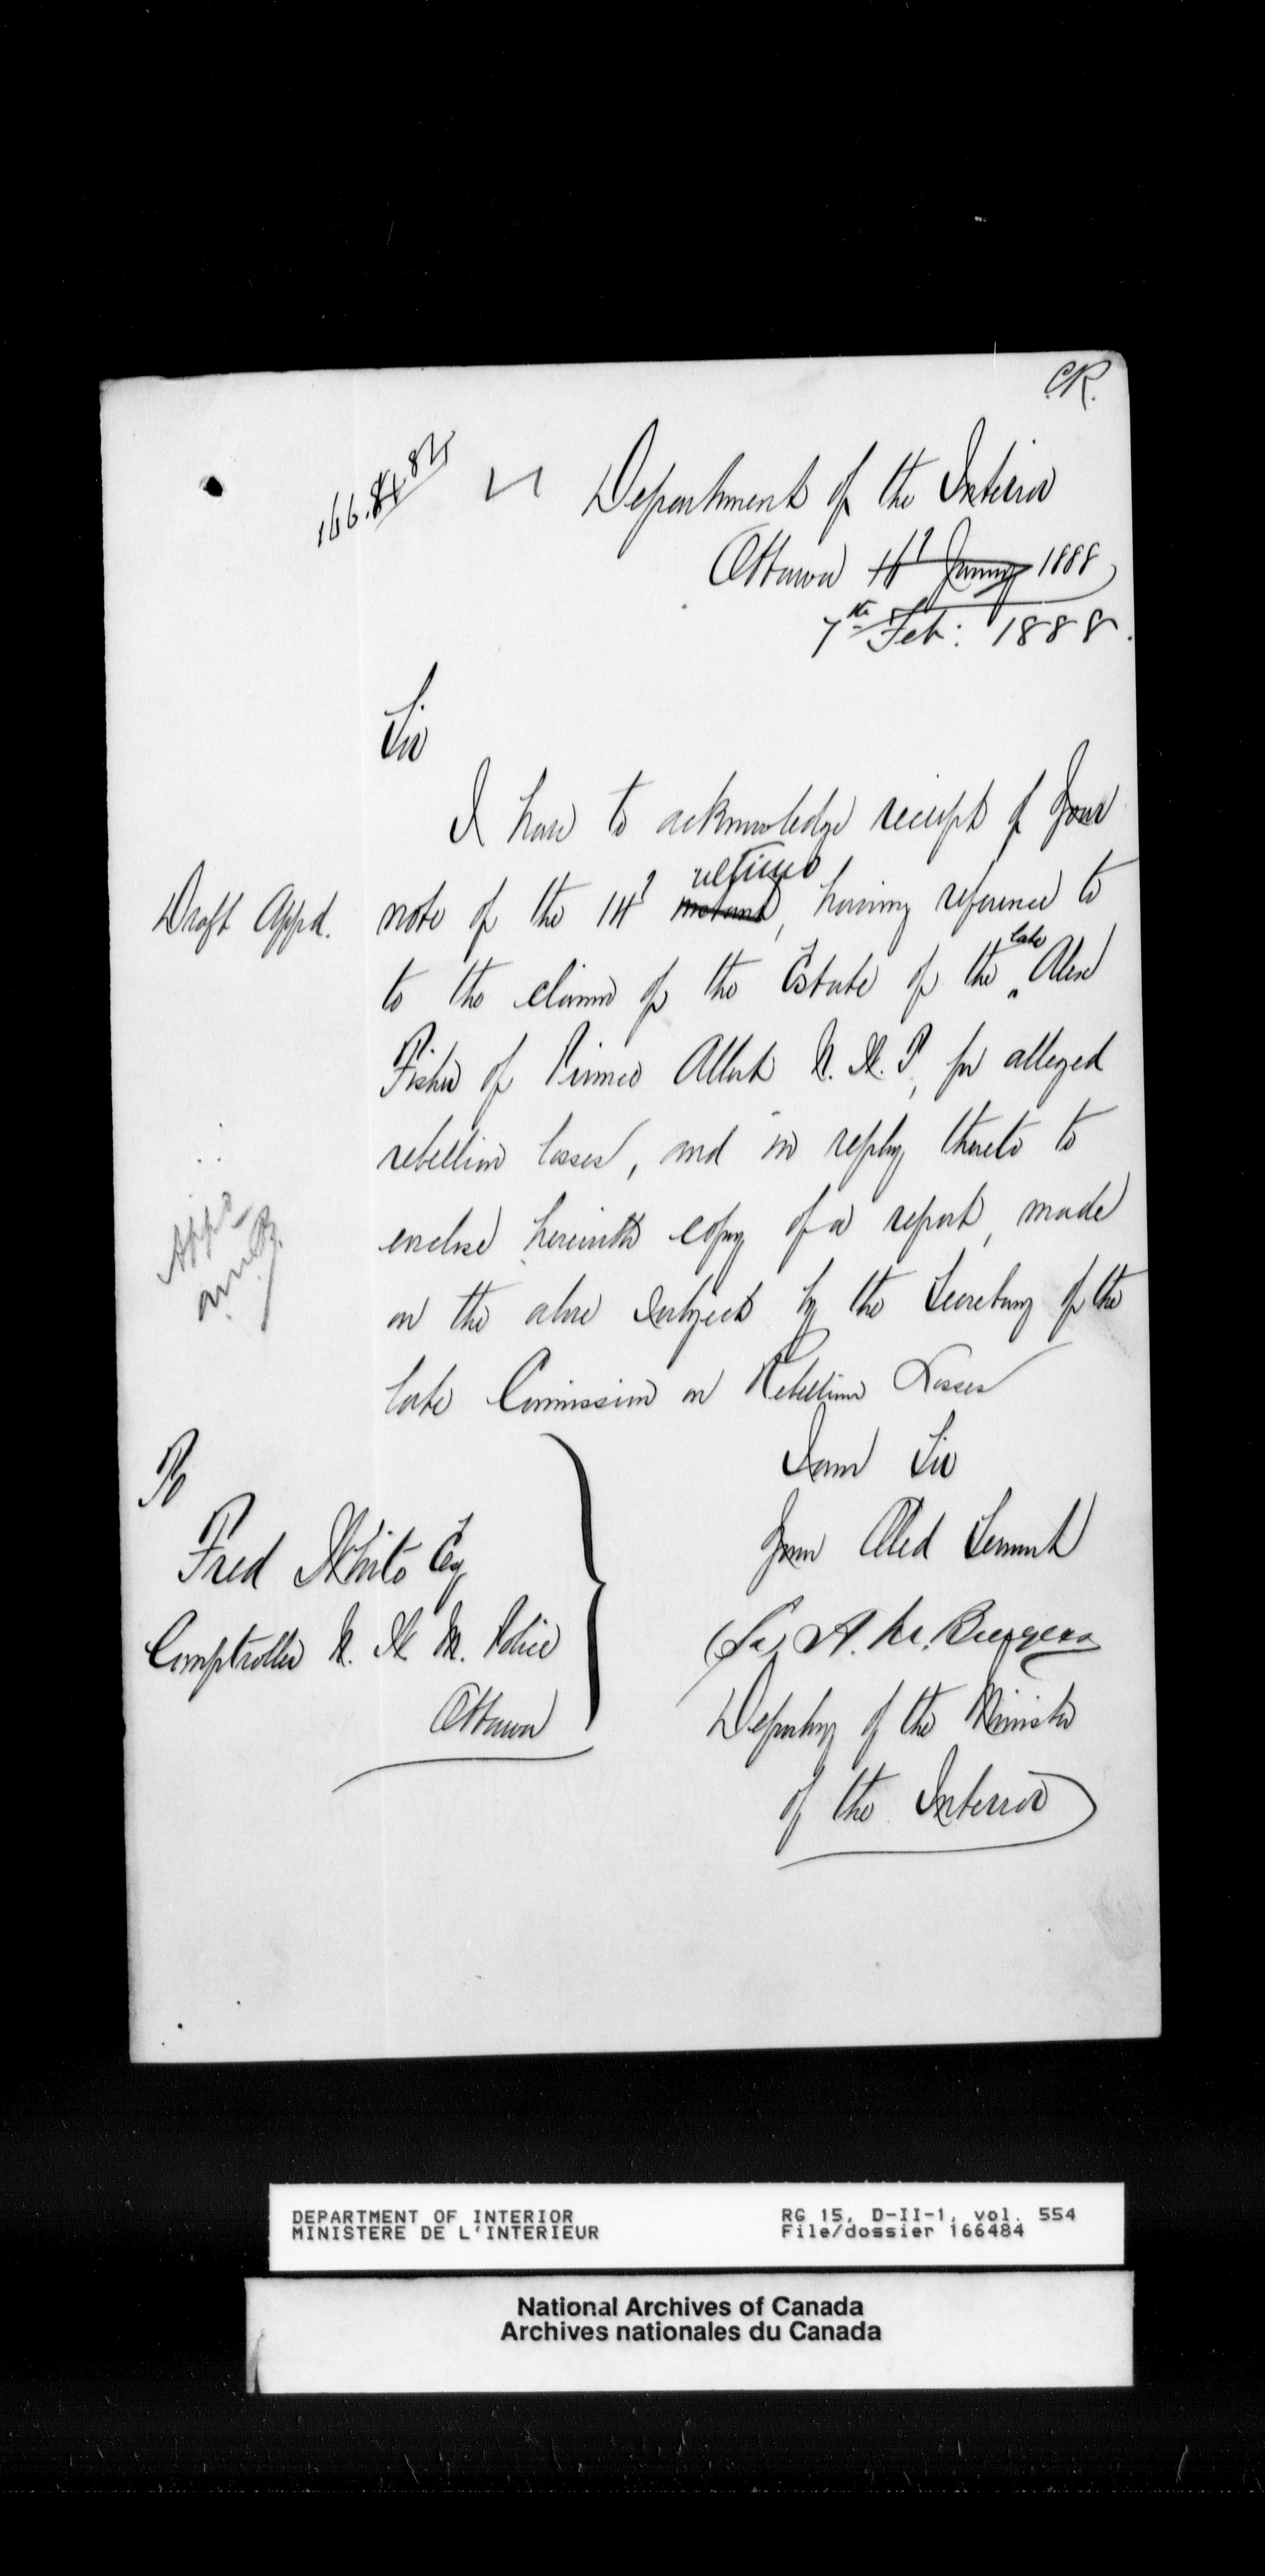 C.R.
166.84 84
Department of the Interior
Ottawa January 1888
7th Feb: 1888.
Sir
I have to acknowledge receipt of your
ultimo
Draft Appd.
note of the instant, having reference to
late
to the claim of the Estate of the Alex
Fisher of Prince Albert N. W. T, for alleged
rebellion losses, and in reply thereto to
enclose herewith copy of a report, made
on the above subject by the Secretary of the
late Commission on Rebellion Losses
I am Sir
Your Obed Servant
A. M. Burgess
Deputy of the Minister
of the Interior
To
Fred White Esq
Comptroller N. W. M. Police
Ottawa
DEPARTMENT OF INTERIOR
MINISTERE DE L'INTERIEUR
RG 15, D-II-1, vol. 554
File/dossier 166484
National Archives of Canada
Archives nationales du Canada